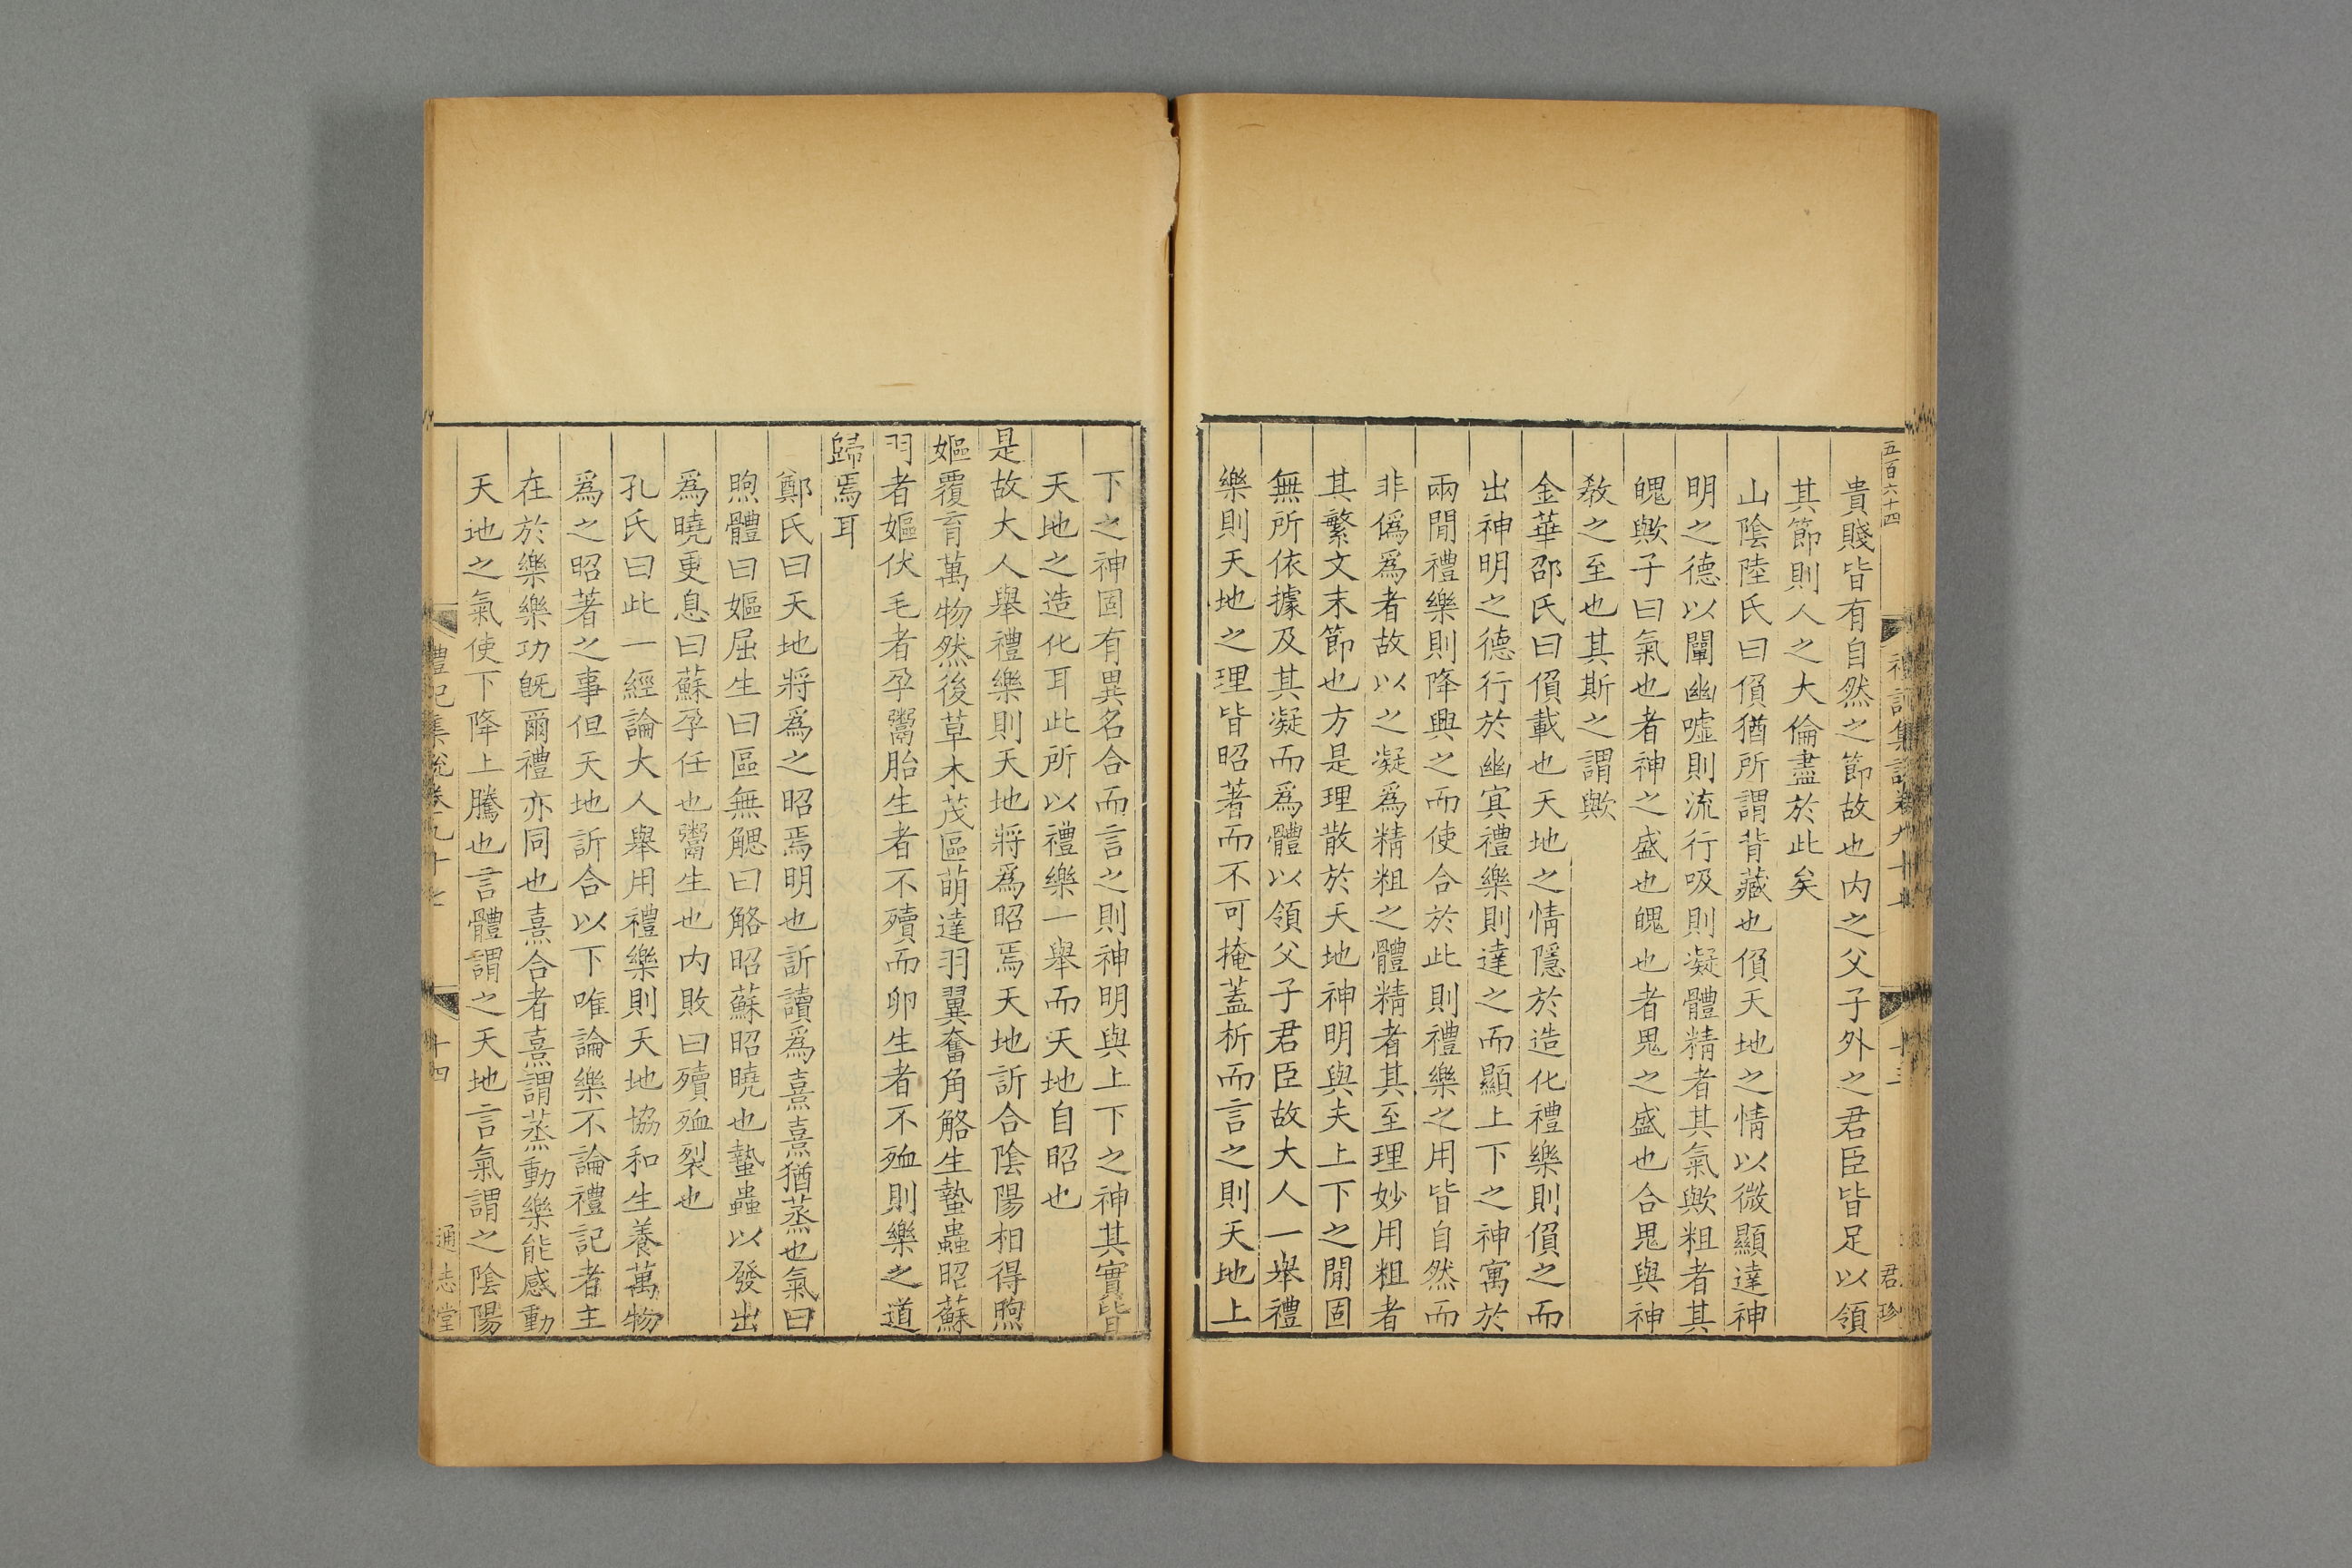 五百六十四
禮記集說卷九十七
十三
君珍
貴賤皆有自然之節故也内之父子外之君臣皆足以領
其節則人之大倫盡於此矣
山陰陸氏曰偩猶所謂背藏也偩天地之情以微顯達神
明之德以闡幽噓則流行吸則凝體精者其氣歟粗者其
魄歟子曰氣也者神之盛也魄也者鬼之盛也合鬼與神
敎之至也其斯之謂歟
金華邵氏曰偩載也天地之情隱於造化禮樂則偩之而
出神明之德行於幽冥禮樂則達之而顯上下之神寓於
兩閒禮樂則降興之而使合於此則禮樂之用皆自然而
非僞爲者故以之凝爲精粗之體精者其至理妙用粗者
其繁文末節也方是理散於天地神明與夫上下之閒固
無所依據及其凝而爲體以領父子君臣故大人一舉禮
樂則天地之理皆昭著而不可掩蓋析而言之則天地上
下之神固有異名合而言之則神明與上下之神其實皆
天地之造化耳此所以禮樂一舉而天地自昭也
是故大人舉禮樂則天地將爲昭焉天地訢合陰陽相得煦
嫗覆育萬物然後草木茂區萌達羽翼奮角觡生蟄蟲昭蘇
羽者嫗伏毛者孕鬻胎生者不殰而卵生者不殈則樂之道
歸焉耳
鄭氏曰天地將爲之昭焉明也訢讀爲熹熹猶蒸也氣曰
煦體曰嫗屈生曰區無䚡曰觡昭蘇昭曉也蟄蟲以發出
爲曉更息曰蘇孕任也鬻生也内敗曰殰殈裂也
孔氏曰此一經論大人舉用禮樂則天地協和生養萬物
爲之昭著之事但天地訢合以下唯論樂不論禮記者主
在於樂樂功旣爾禮亦同也熹合者熹謂蒸動樂能感動
天地之氣使下降上騰也言體謂之天地言氣謂之陰陽
禮記集說卷九十七
十四
通志堂